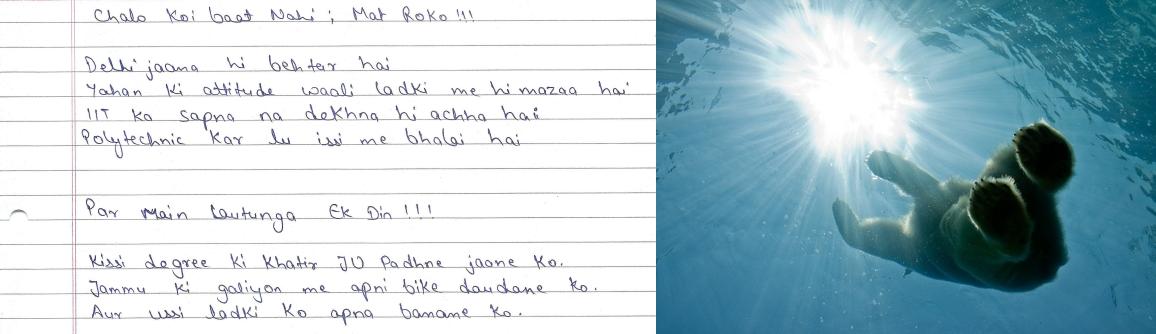 Chalo Koi baat Nahi ; Mat Roko !!!
Delhi jaana hi behtar hai
Yahan Ki attitude waali ladki me hi mazaa hai
IIT ka sapna na dekhna hi achha hai
Polytechnic Kar lu issi me bhalai hai
Par Main Lautunga Ek Din !!!
Kissi degree Ki Khatir JU Padhne jaane Ko.
Jammu Ki galiyon me apni bike daudane Ko.
Aur ussi ladki Ko apna banane Ko.